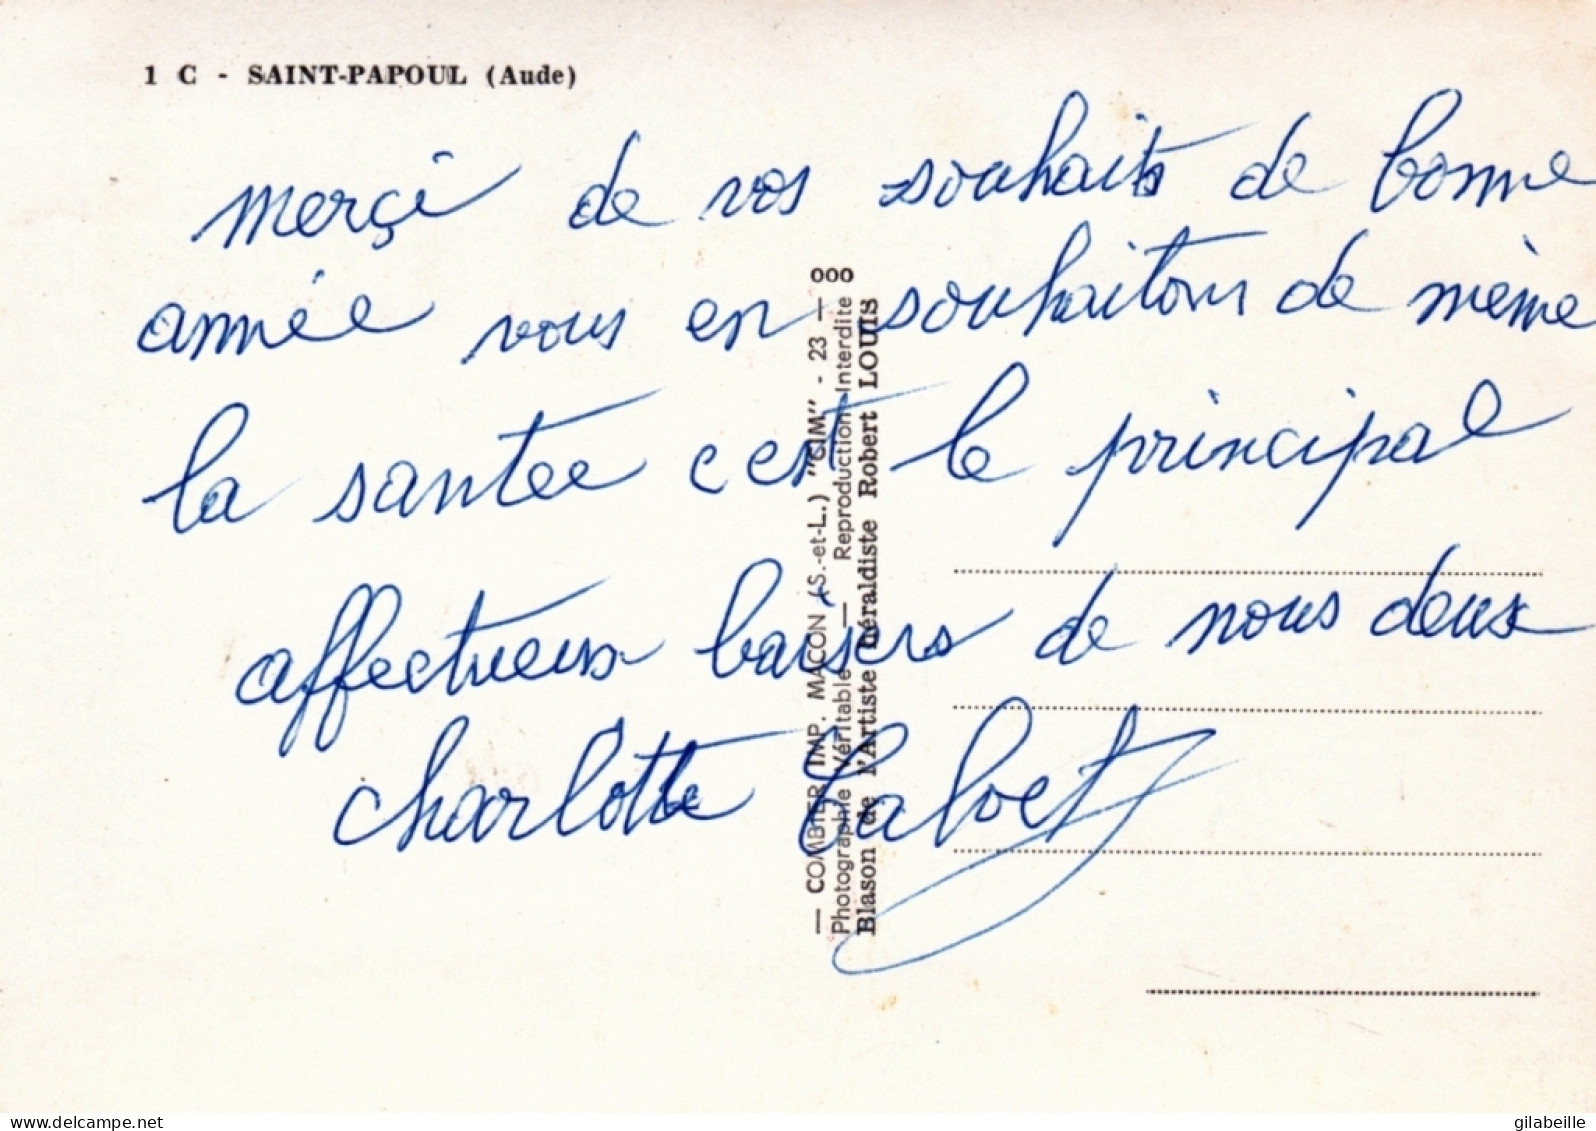 1 C - SAINT-PAPOUL (Aude)
merçi de vos souhaits de bonne
année vous en souhaitons de même
la santee c est le principal
affectueux baisers de nous deux
Charlotte Calvet
— COMBIER IMP. MACON (S.-et-L.) "CIM" - 23 —
Photographie Véritable — Reproduction Interdite
Blason de l'Artiste Héraldiste Robert LOUIS
ooo
gilabeille